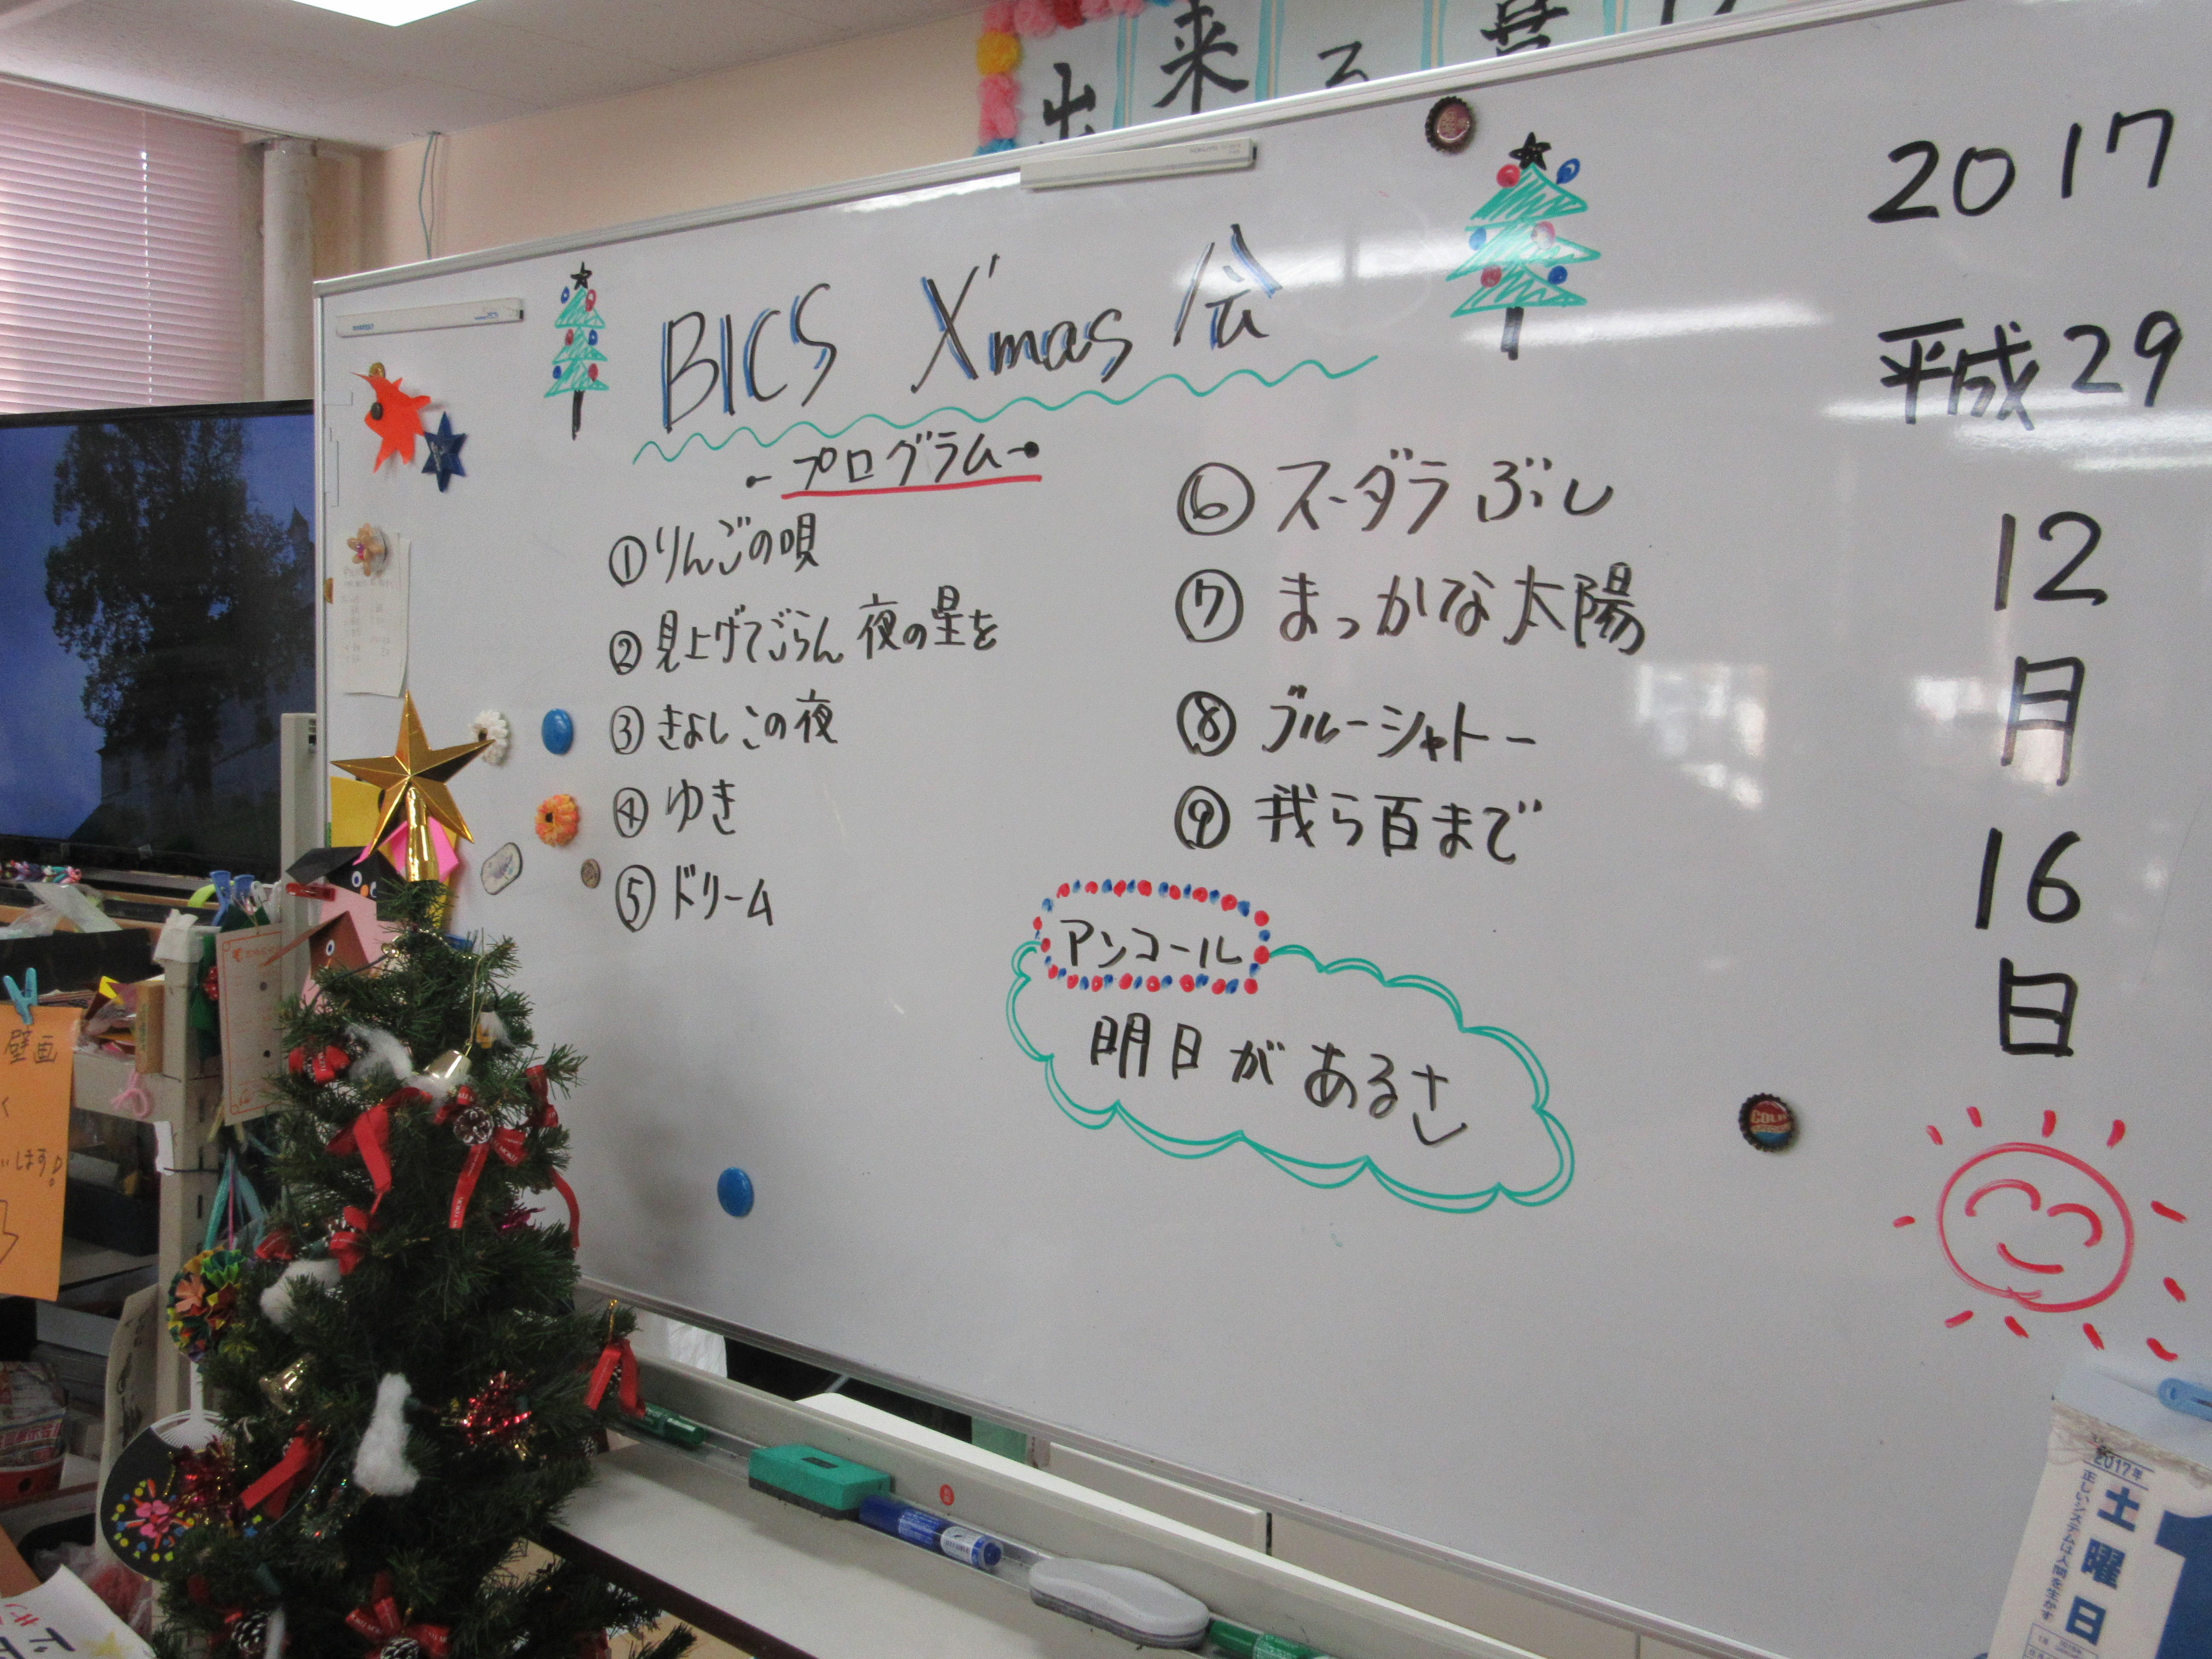 出来る
BICS X'mas会
プログラム
①りんごの唄
②見上げてごらん 夜の星を
③きよしこの夜
④ゆき
⑤ドリーム
⑥スーダラぶし
⑦まっかな太陽
⑧ブルーシャトー
⑨我ら百まで
アンコール
明日があるさ
2017
平成29
12
月
16
日
COLA
壁画
く
します!
2017年
土曜日
正しいシステムは人間を生かす